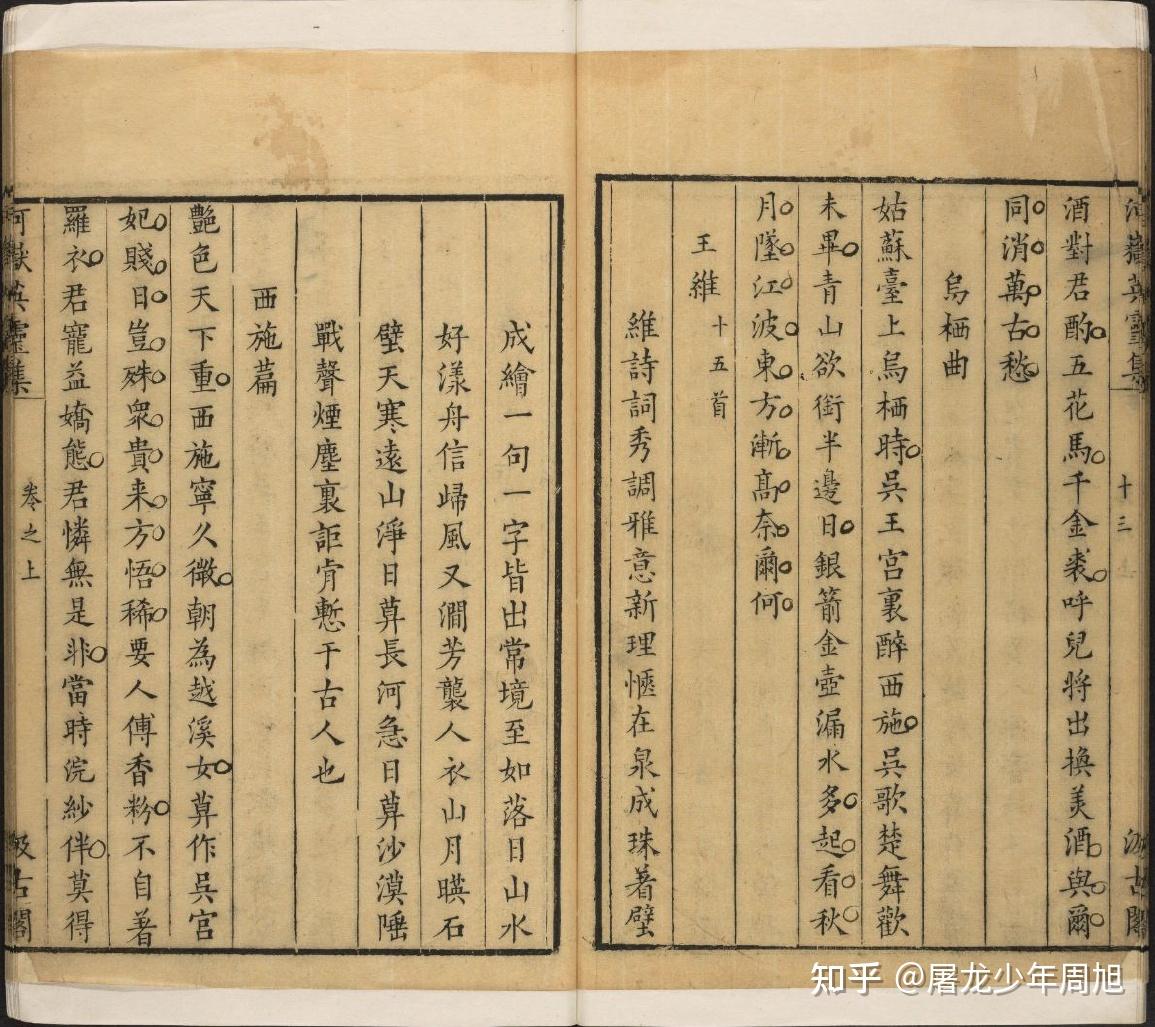 河嶽英靈集 十三 汲古閣
酒對君酌五花馬千金裘呼兒將出換美酒與爾
同消萬古愁
烏栖曲
姑蘇臺上烏栖時吳王宮裏醉西施吳歌楚舞歡
未畢青山欲銜半邊日銀箭金壺漏水多起看秋
月墜江波東方漸髙奈爾何
王維十五首
維詩詞秀調雅意新理愜在泉成珠着壁
成繪一句一字皆出常境至如落日山水
好漾舟信歸風又澗芳襲人衣山月暎石
壁天寒遠山淨日暮長河急日暮沙漠陲
戰聲煙塵裏詎肯慙于古人也
西施篇
艷色天下重西施寧久微朝為越溪女暮作吳宮
妃賤日豈殊眾貴来方悟稀要人傅香粉不自著
羅衣君寵益嬌態君憐無是非當時浣紗伴莫得
河嶽英靈集 卷之上 汲古閣
知乎 @屠龙少年周旭